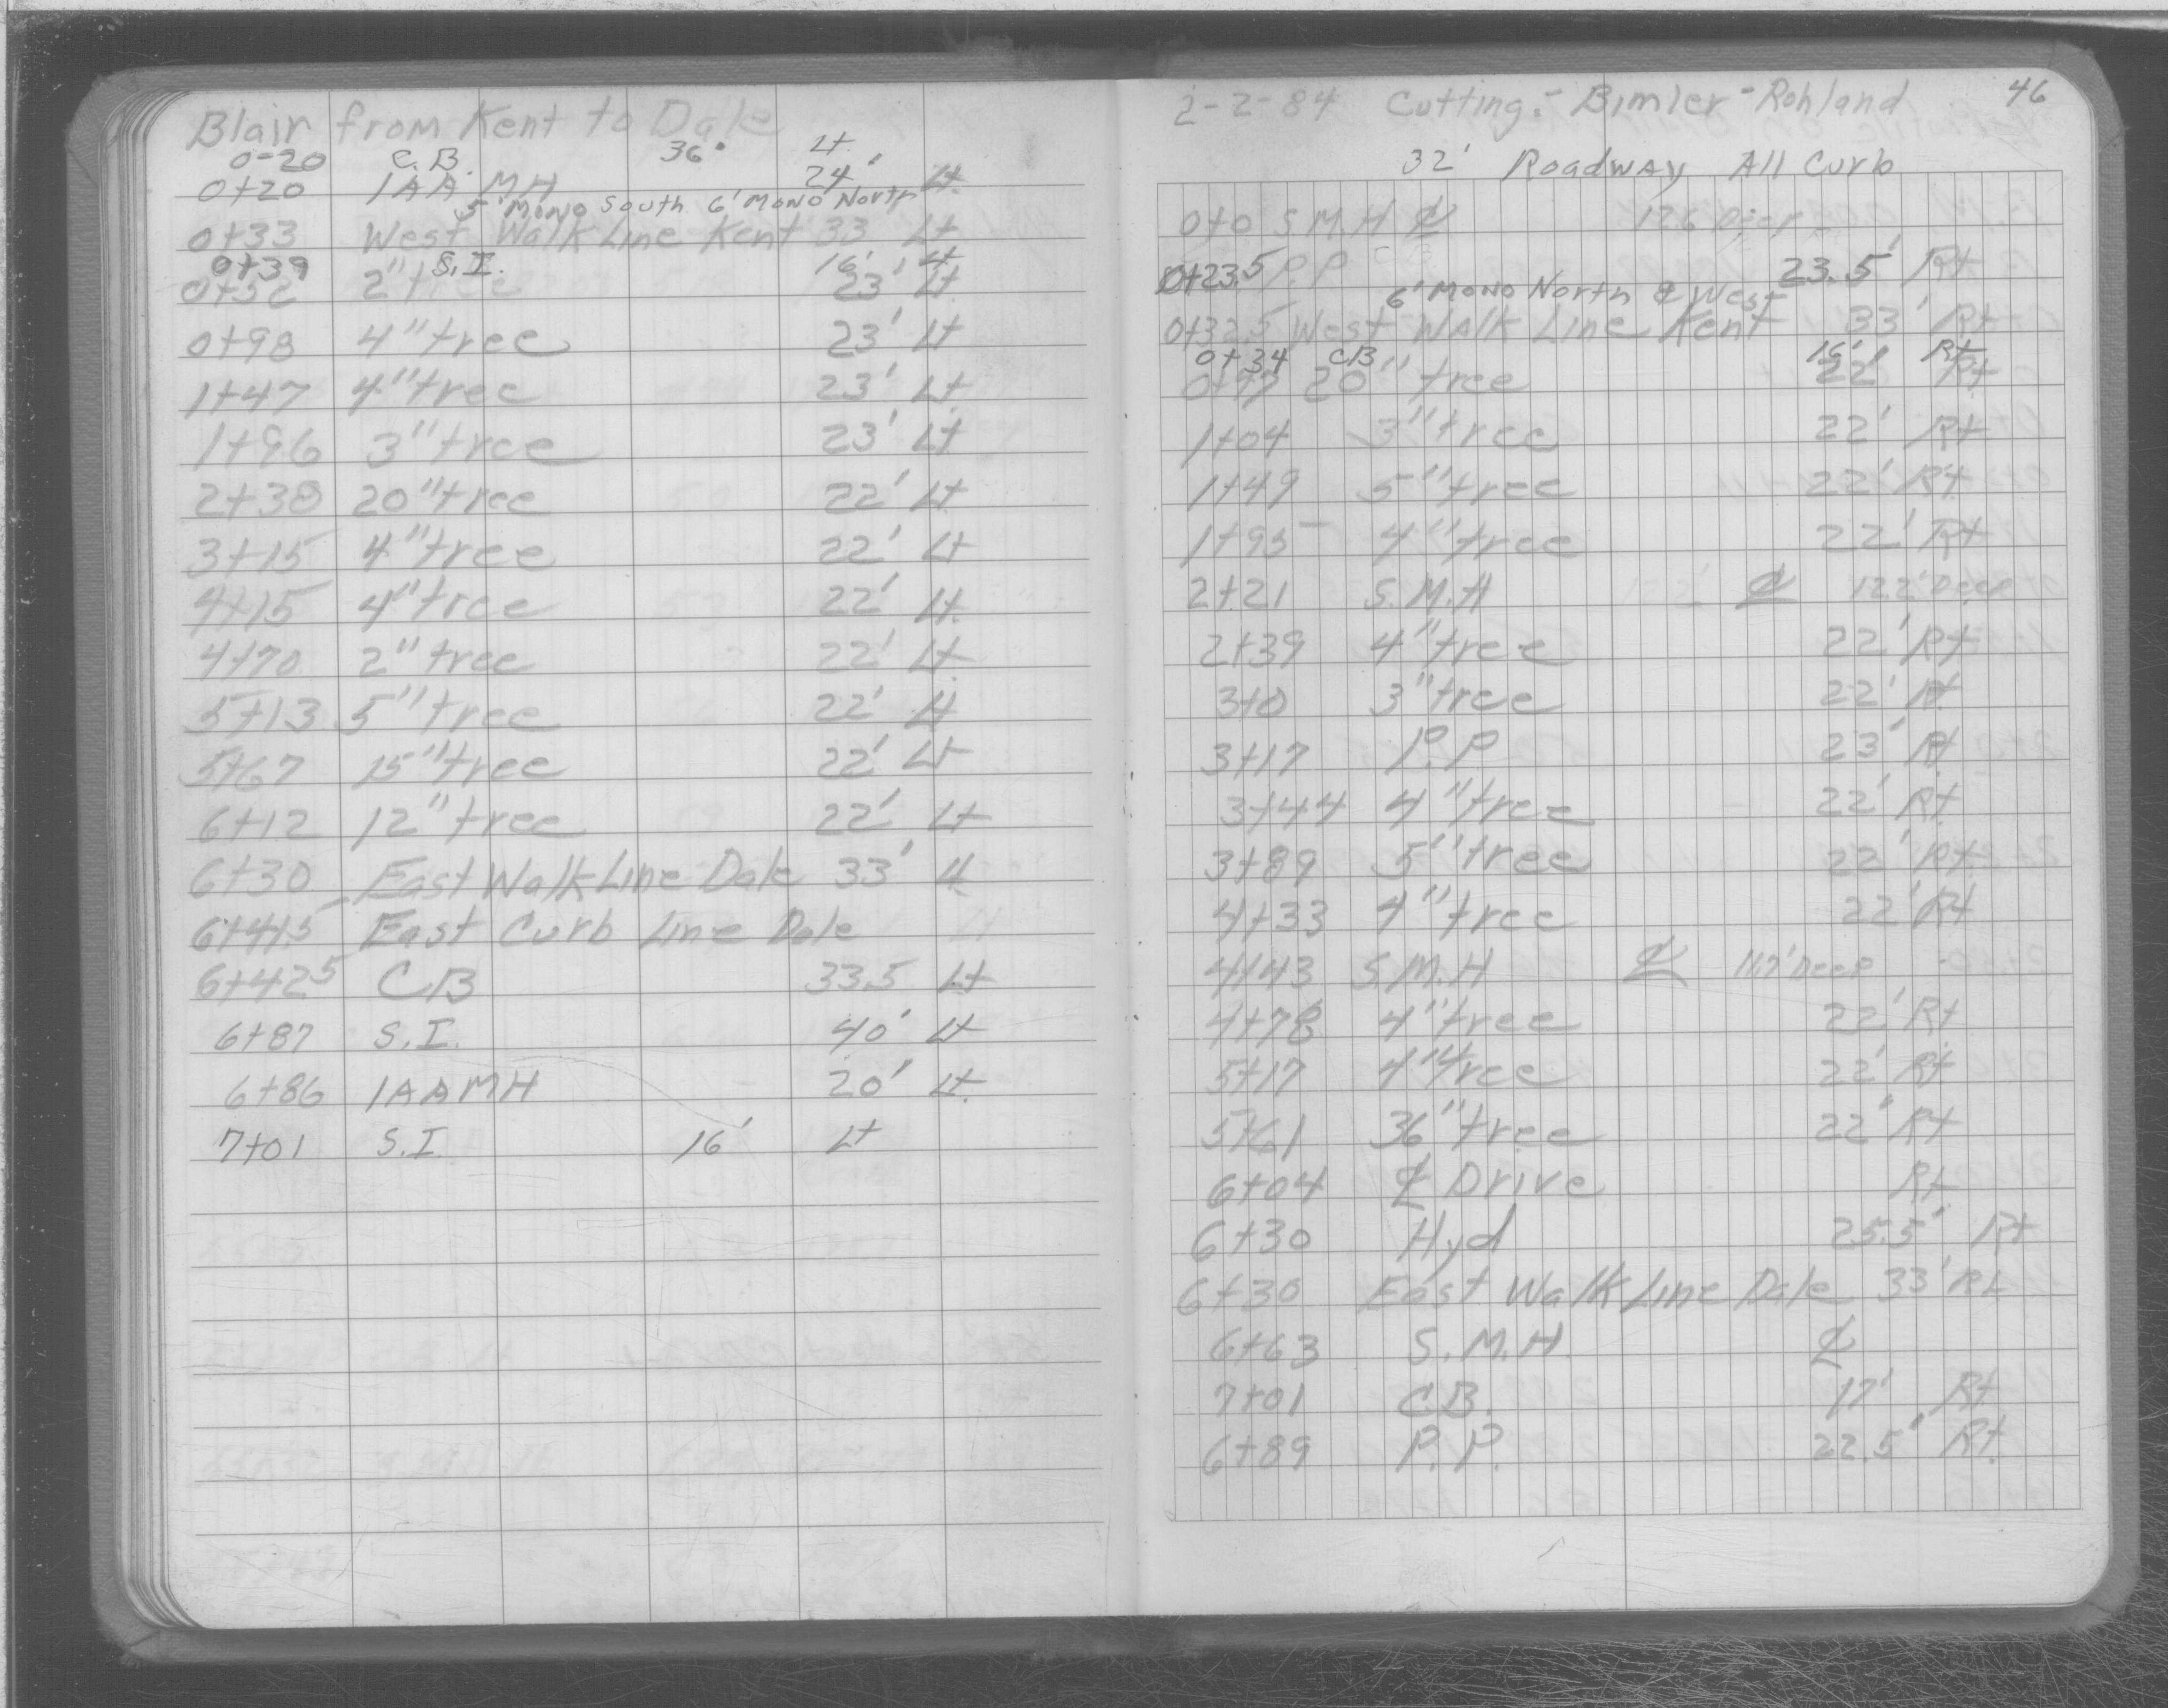 Blair from Kent to Dale
0-20 C.B. 36' Lt.
0+20 1AA MH 24' Lt.
5' Mono South 6' Mono North
0+33 West Walk Line Kent 33 Lt
0+39 S.I. 16' Lt
0+52 2" tree 23' Lt
0+98 4" tree 23' Lt
1+47 4" tree 23' Lt
1+96 3" tree 23' Lt
2+38 20" tree 22' Lt
3+15 4" tree 22' Lt
4+15 4" tree 22' Lt.
4+70 2" tree 22' Lt
5+13 5" tree 22' Lt
5+67 15" tree 22' Lt
6+12 12" tree 22' Lt
6+30 East Walk Line Dale 33' Lt
6+41.5 East Curb Line Dale Lt
6+42.5 CB 33.5 Lt
6+87 S.I. 40' Lt
6+86 1AAMH 20' Lt.
7+01 S.I. 16' Lt
2-2-84 Cutting - Bimler - Rohland 46
32' Roadway All Curb
0+0 S.M.H ℄ 12.6
0+23.5 P.P 23.5' Rt
6' Mono North & West
0+32.5 West Walk Line Kent 33' Rt
0+34 CB 16' Rt
20" tree 22' Rt
1+04 3" tree 22' Rt
1+49 5" tree 22' Rt
1+95 4" tree 22' Rt
2+21 S.M.H ℄ 12.2' Deep
2+39 4" tree 22' Rt
3+0 3" tree 22' Rt
3+17 P.P 23' Rt
3+44 4" tree 22' Rt
3+89 5" tree 22' Rt
4+33 4" tree 22' Rt
4+43 S.M.H ℄ Deep
4+78 4" tree 22' Rt
5+17 4" tree 22' Rt
5+61 36" tree 22' Rt
6+04 ℄ Drive Rt
6+30 Hyd 25.5' Rt
6+30 East Walk Line Dale 33' Rt
6+63 S.M.H. ℄
7+01 C.B. 17' Rt
6+89 P.P. 22.5' Rt